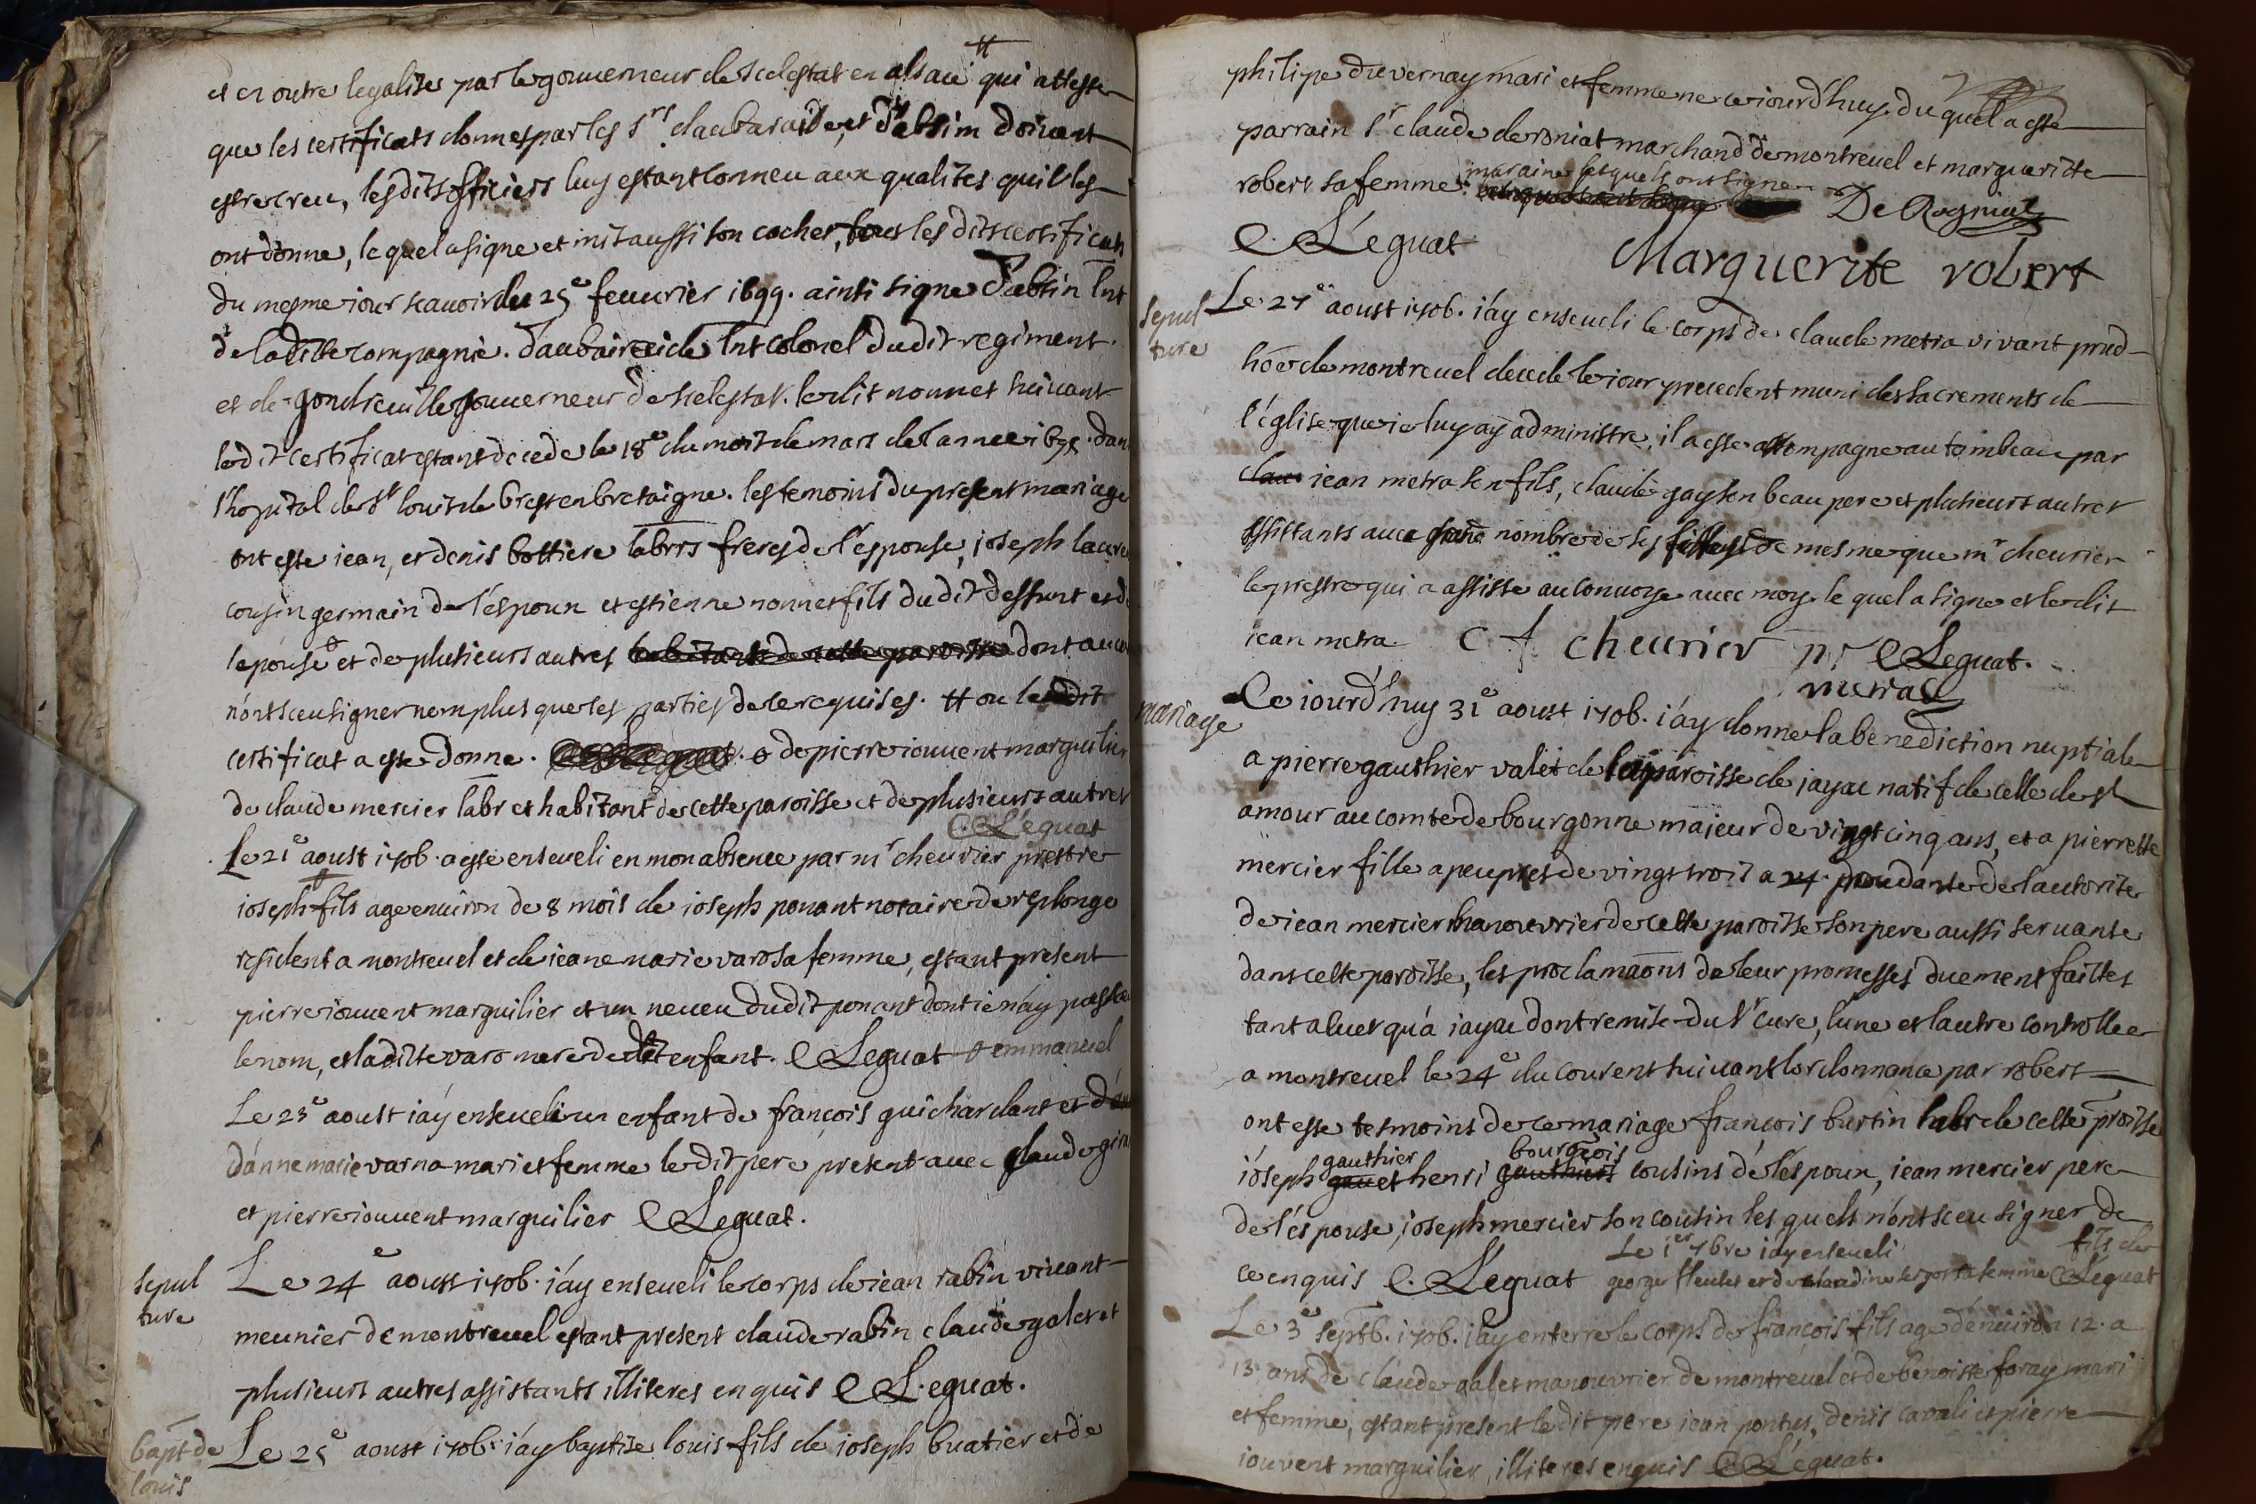 et en outre legalise par le gouverneur de scelestat en alsace # qui atteste
que les certificats donnes par les srs daubaraide, et d'absin doivent
estre creu, lesdits officiers luy estant conneu aux qualites quil les
ont donne, le quel a signe et mis aussi son cachet, tous les dits certificats
du mesme iour scauoir du 25e feuurier 1699. ainsi signe d'absin lnt
de laditte compagnie. daubaireide lnt colonel dudit regiment.
et de gondreuille gouuerneur de scelestat. ledit nonnet suiuant
ledit certificat estant decede le 18e du mois de mars de l'annee 169 dan
l'hopital de st louis de brest en bretaigne. les temoins du present mariage
ont este iean, et denis bottiere labrrs freres de l'espouse, ioseph
cousin germain de l'espoux et estienne nonnet fils du dit deffunt et de
lepouse et de plusieurs autres habitants de cette paroisse dont aucu
n'ont sceu signer nom plus que les parties de ce requises. # ou ledit
certificat a este donne. o de pierre iouuent marguilier
de claude mercier labr et habitant de cette paroisse et de plusieurs autres
C. Leguat
Le 21e aoust 1706. a este enseueli en mon absence par mr cheurier prestre
ioseph fils age enuiron de 8 mois de ioseph ponant notaire de replonge
resident a montreuel et de ieane marie varo sa femme, estant present
pierre iouuent marguilier et un neueu dudit ponant dont ie n'ay pas sceu
le nom, et laditte varo mere dedit enfant. C Leguat o emmanuel
Le 23e aoust i'ay enseueli un enfant de françois guichardant et
d'anne marie varna mari et femme le dit pere present auec claude
et pierre iouuent marguilier C Leguat.
sepul
ture
Le 24e aoust 1706. i'ay enseueli le corps de iean rabin viuant
meunier de montreuel estant present claude rabin claude galet et
plusieurs autres assistants illiteres enquis C Leguat.
bapt de
louis
Le 25e aoust 1706. i'ay baptise louis fils de ioseph buatier et de
philipe duvernay mari et femme ne ce iourd'huy. du quel a este
parrain sr claude deroniat marchand de montreuel et marguaritte
robert sa femme maraine lesquels ont signe De Rogniat
C Leguat Marguerite robert
sepul
ture
Le 27e aoust 1706. i'ay enseueli le corps de claude metra vivant prud-
hoe de montreuel decede le iour precedent muni des sacrements de
l'église que ie luy ay administre, il a este accompagne au tombeau par
clau iean metra son fils, claude gay son beau pere et plusieurs autres
assistants auec grand nombre de ses filleuls de mesme que mr cheurier
le prestre qui a assiste au conuoye auec moy. le quel a signe et le dit
iean metra. C f cheurier pr C Leguat.
metra
mariage
Ce iourd'huy 31e aoust 1706. i'ay donne la benediction nuptiale
a pierre gauthier valet de la paroisse de jayac natif de celle de st
amour au comte de bourgonne majeur de vingt cinq ans, et a pierrette
mercier fille a peu pres de vingt trois a 24. proudante de l'autorite
de iean mercier manouvrier de cette paroisse son pere aussi seruante
dans cette paroisse, les proclamaons de leur promesses duement faittes
tant aluet qu'a iayac dont remise du sr cure, lune et lautre controllee
a montreuel le 24e du courent suiuant lordonnance par robert
ont este tesmoins de ce mariage françois burtin labr de cette proisse
gauthier bourgeois
ioseph gauet henri gauthier cousins de l'espoux, iean mercier pere
de l'espouse, ioseph mercier son cousin les quels n'ont sceu signer de
ce enquis C. Leguat
Le 1er 7bre i'ay enseueli fils de
george et de claudine sa femme C Leguat
Le 3e septb. 1706. i'ay enterre le corps de françois fils age d'enuiron 12. a
13. ans de claude galet manouvrier de montreuel et de benoiste foray mari
et femme, estant present le dit pere iean pontus, denis cavali et pierre
iouvent marguilier, illiteres enquis C Leguat.